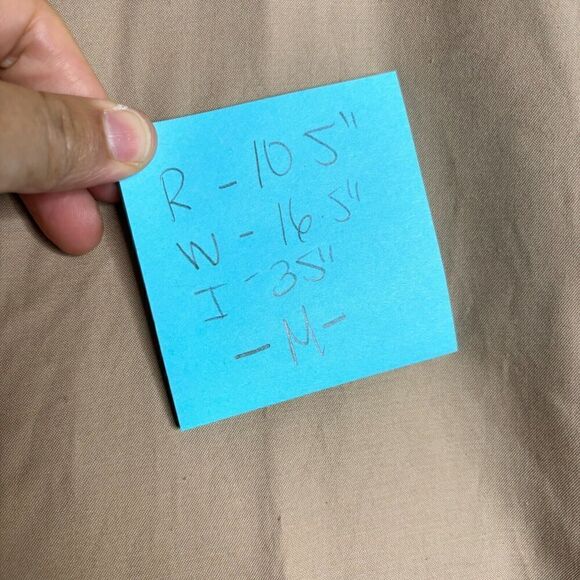 R - 10 5"
W - 16.5"
I - 35"
- M -